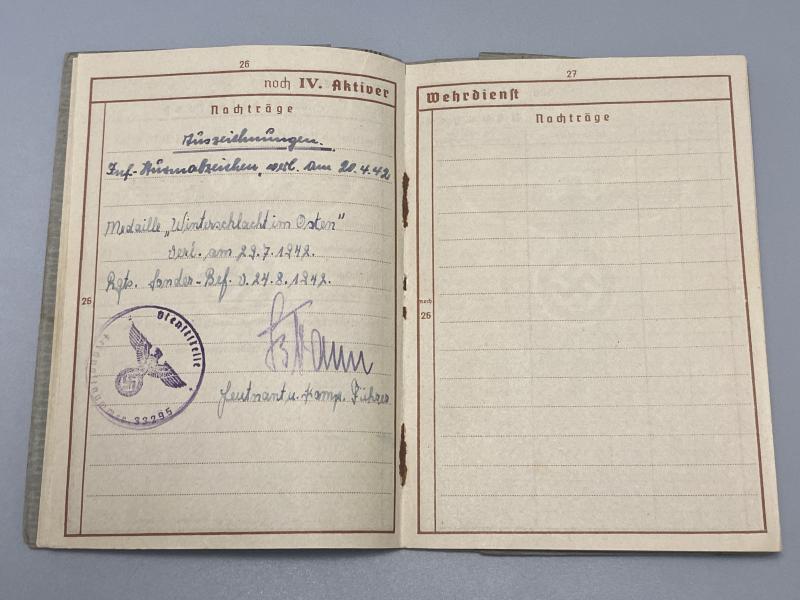 26
noch IV. Aktiver
Nachträge
Auszeichnungen.
Inf.-Sturmabzeichen, verl. am 20.4.42
Medaille „Winterschlacht im Osten"
verl. am 29.7.1942.
Rgts. Sonder-Bef. v. 24.8.1942.
26
Dienststelle
Feldpostnummer 33295
Leutnant u. Komp. Führer
27
Wehrdienst
Nachträge
noch
26